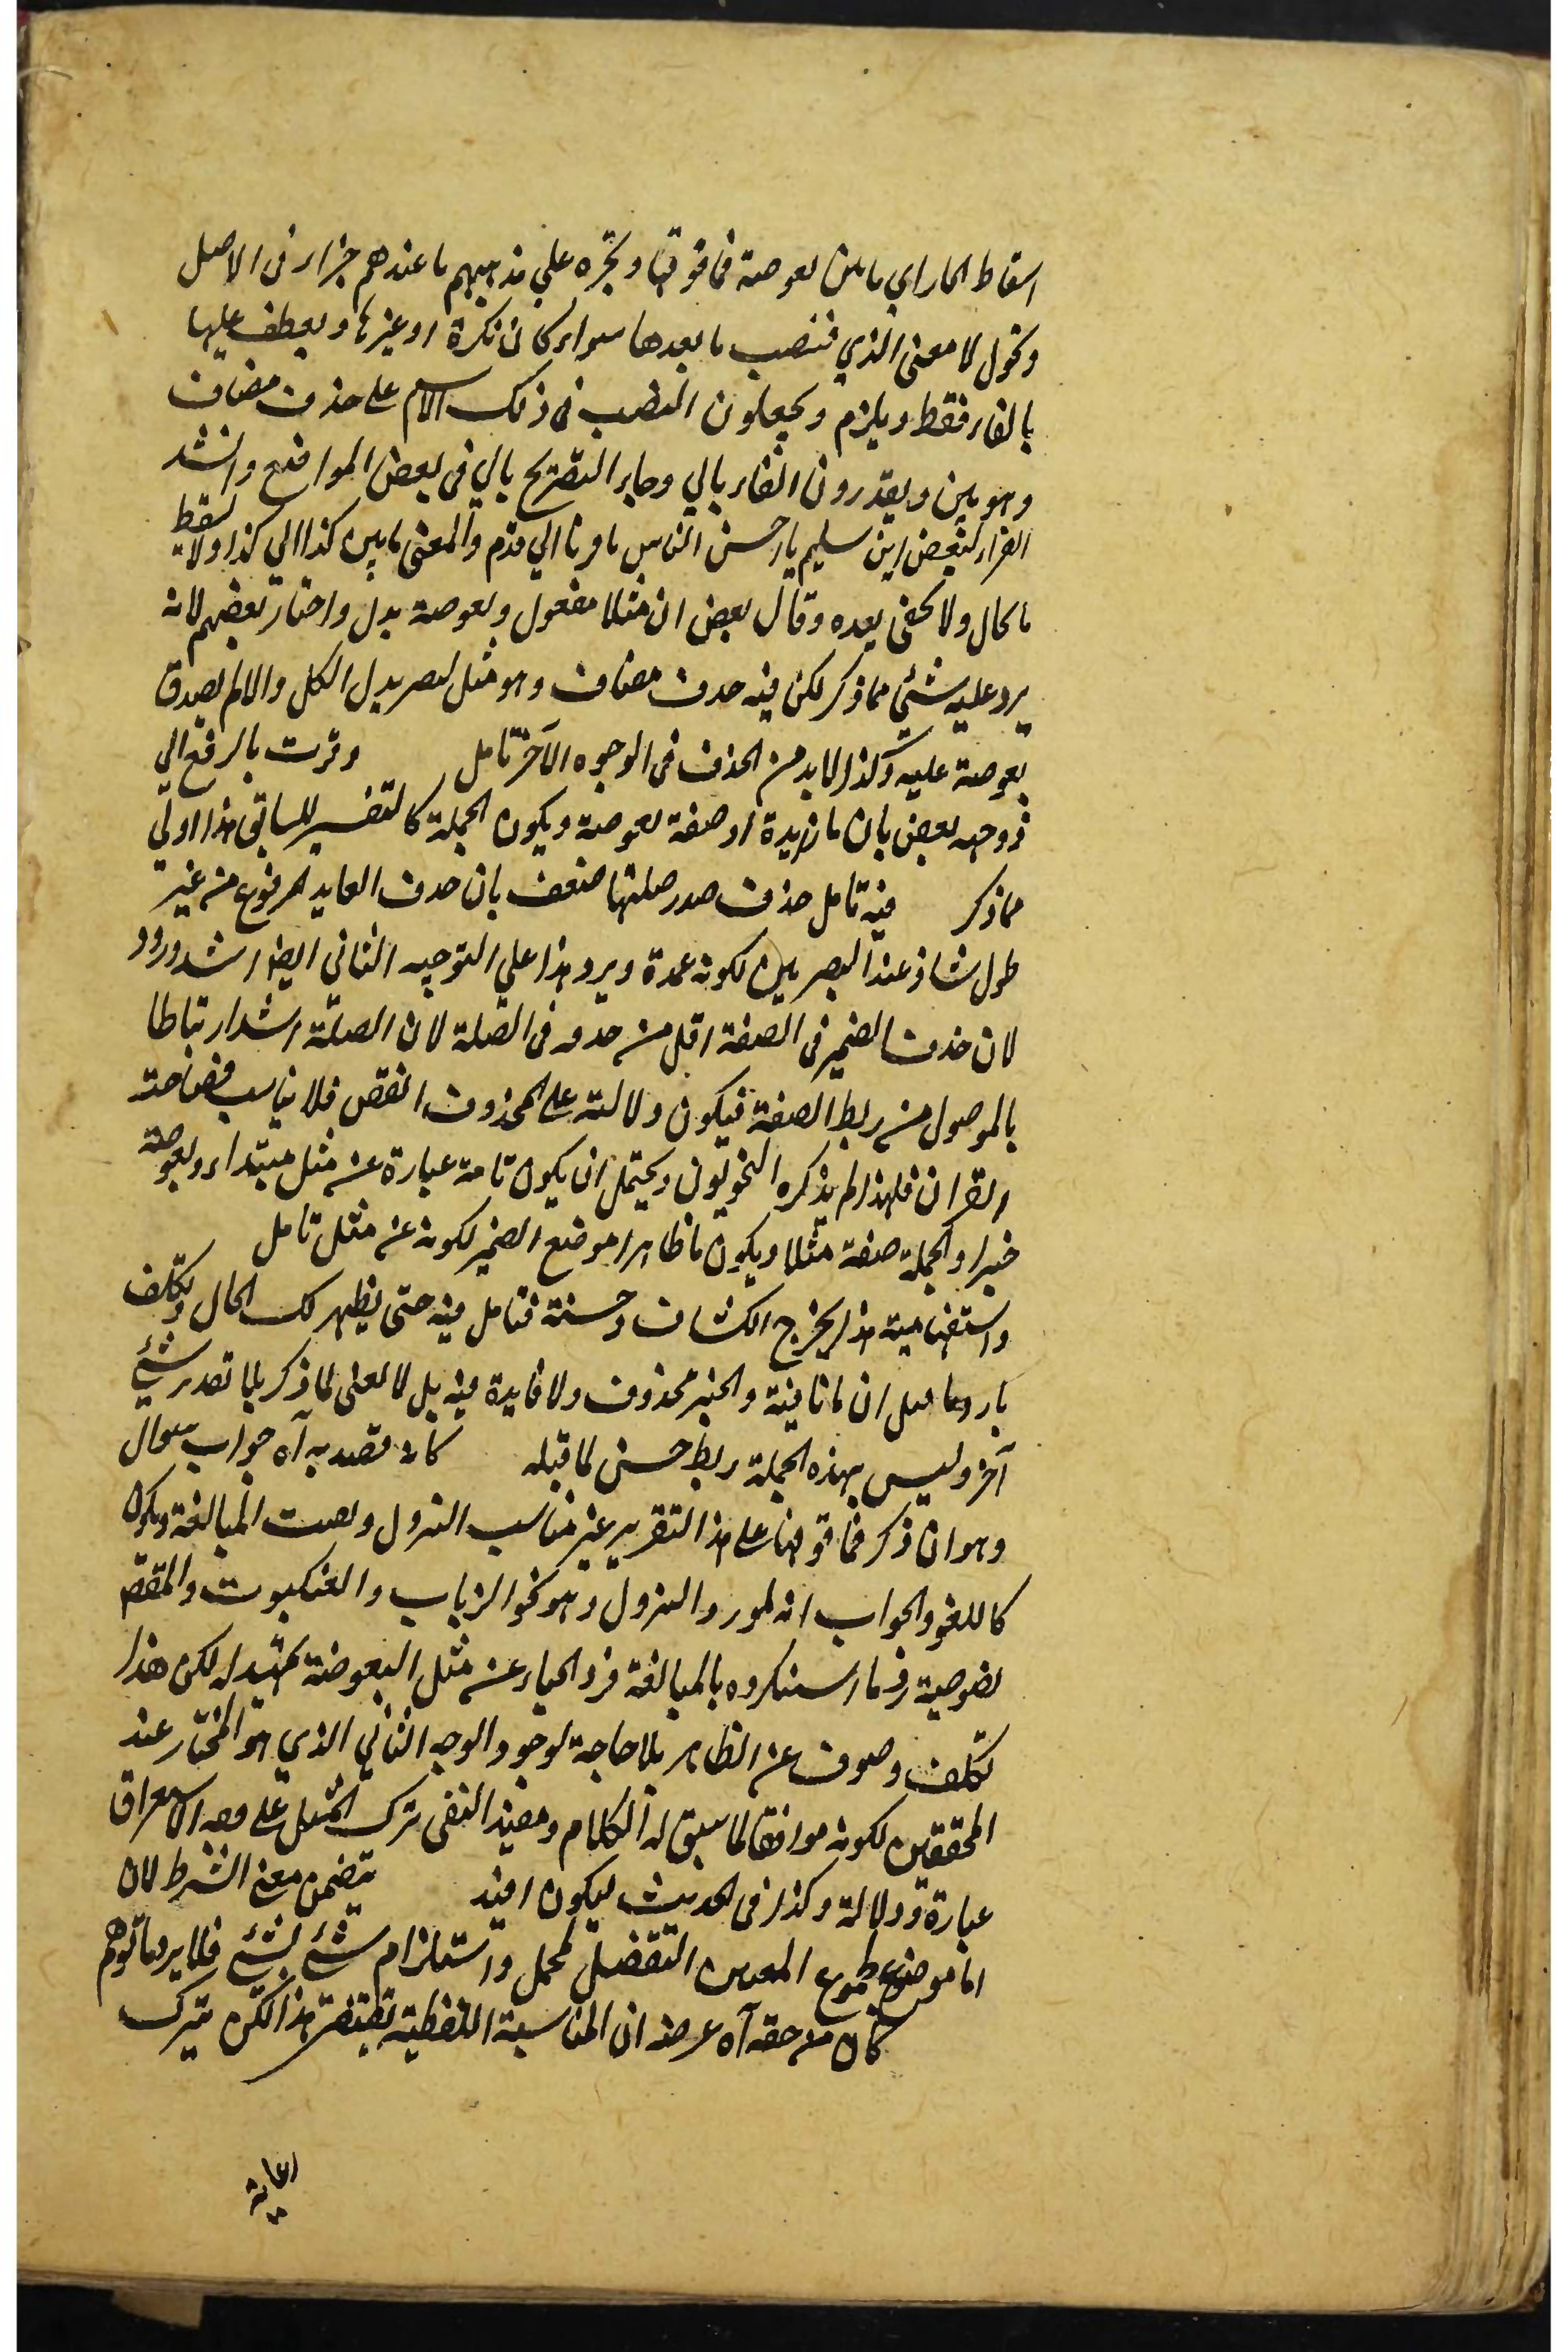 اسقاط الجار اي ما بين بعوضة فما فوقها ونحره علي مذهبهم ما عندهم جزاء في الاصل
وتحول لا معنى الذي فتنصب ما بعدها سواء كان نكرة او غيرها ويعطف عليها
بالفاء فقط ويلزم ويجعلون النصب في ذلك الاسم على حذف مضاف
وهو بين ويقدرون الفاء بالي وجاء التصريح بالي في بعض المواضع وانشد
الفراء لبعض ابن سليم يا احسن الناس ما قرنا الي قدم والمعنى ما بين كذا الي كذا ولا يسقط
ما كال ولا يخفى بعده وقال بعض ان مثلا مفعول وبعوضة بدل واختار بعضهم لانه
يرد عليه شئي مما ذكر لكن فيه حذف مضاف وهو مثل ليصر بدل الكل والا لم يصدق
بعوضة عليه وكذا لا بد من الحذف في الوجوه الآخر تامل وقرت بالرفع الي
فوجه بعض بان ما زيدة او صفة بعوضة ويكون الجملة كالتفسير للسابق هذا اولي
مما ذكر فيه تامل حذف صدر صلتها ضعف بان حذف العايد المرفوع من غير
طول شاذ عند البصريين لكونه عمدة ويرد هذا علي التوجيه الثاني ايضا اشد ورود
لان حذف الضمير في الصفة اقل من حذفه في الصلة لان الصلة اشد ارتباطا
بالموصول من ربط الصفة فيكون دلالته على المحذوف انقص فلا يناسب فصاحة
القران فلهذا لم يذكره النحويون ويحتمل ان يكون تامة عبارة عن مثل مبتداء وبعوضة
خبرا والجملة صفة مثلا ويكون ما ظاهرا موضع الضمير لكونه عن مثل تامل
واستفهامية هذا يخرج الكشاف وحسنة فتامل فيه حتى يظهر لك الحال وتكلف
بارد ما قيل ان ما نافية والخبر محذوف ولا فايدة فيه بل لا معنى لما ذكر بلا تقدير شئي
آخر وليس بهذه الجملة ربط حسن لما قبله كانه قصد به آه جواب سوال
وهو ان ذكر فما فوقها على هذا التقرير غير مناسب النزول وبصت المبالغة ويكون
كاللغو والجواب انه لمورد النزول وهو نحو الذباب والعنكبوت والمقصد
بخصوصية رد ما استنكروه بالمبالغة فرد الحياء عن مثل البعوضة تمهيد له لكن هذا
تكلف وصرف عن الظاهر بلا حاجة لوجود الوجه الثاني الذي هو المختار عند
المحققين لكونه موافقا لما سبق له الكلام ومفيد النفى ترك التمثيل على وجه الاستغراق
عبارة ودلالة وكذا في الحديث ليكون افيد يتضمن معنى الشرط لان
اما موضوع لمجموع التفضيل لمجمل واستلزام شئي لشئي فلا يرد ما توهم
كان من حقه آه غرضه ان المناسبة اللفظية تقتضى هذا لكن ترك